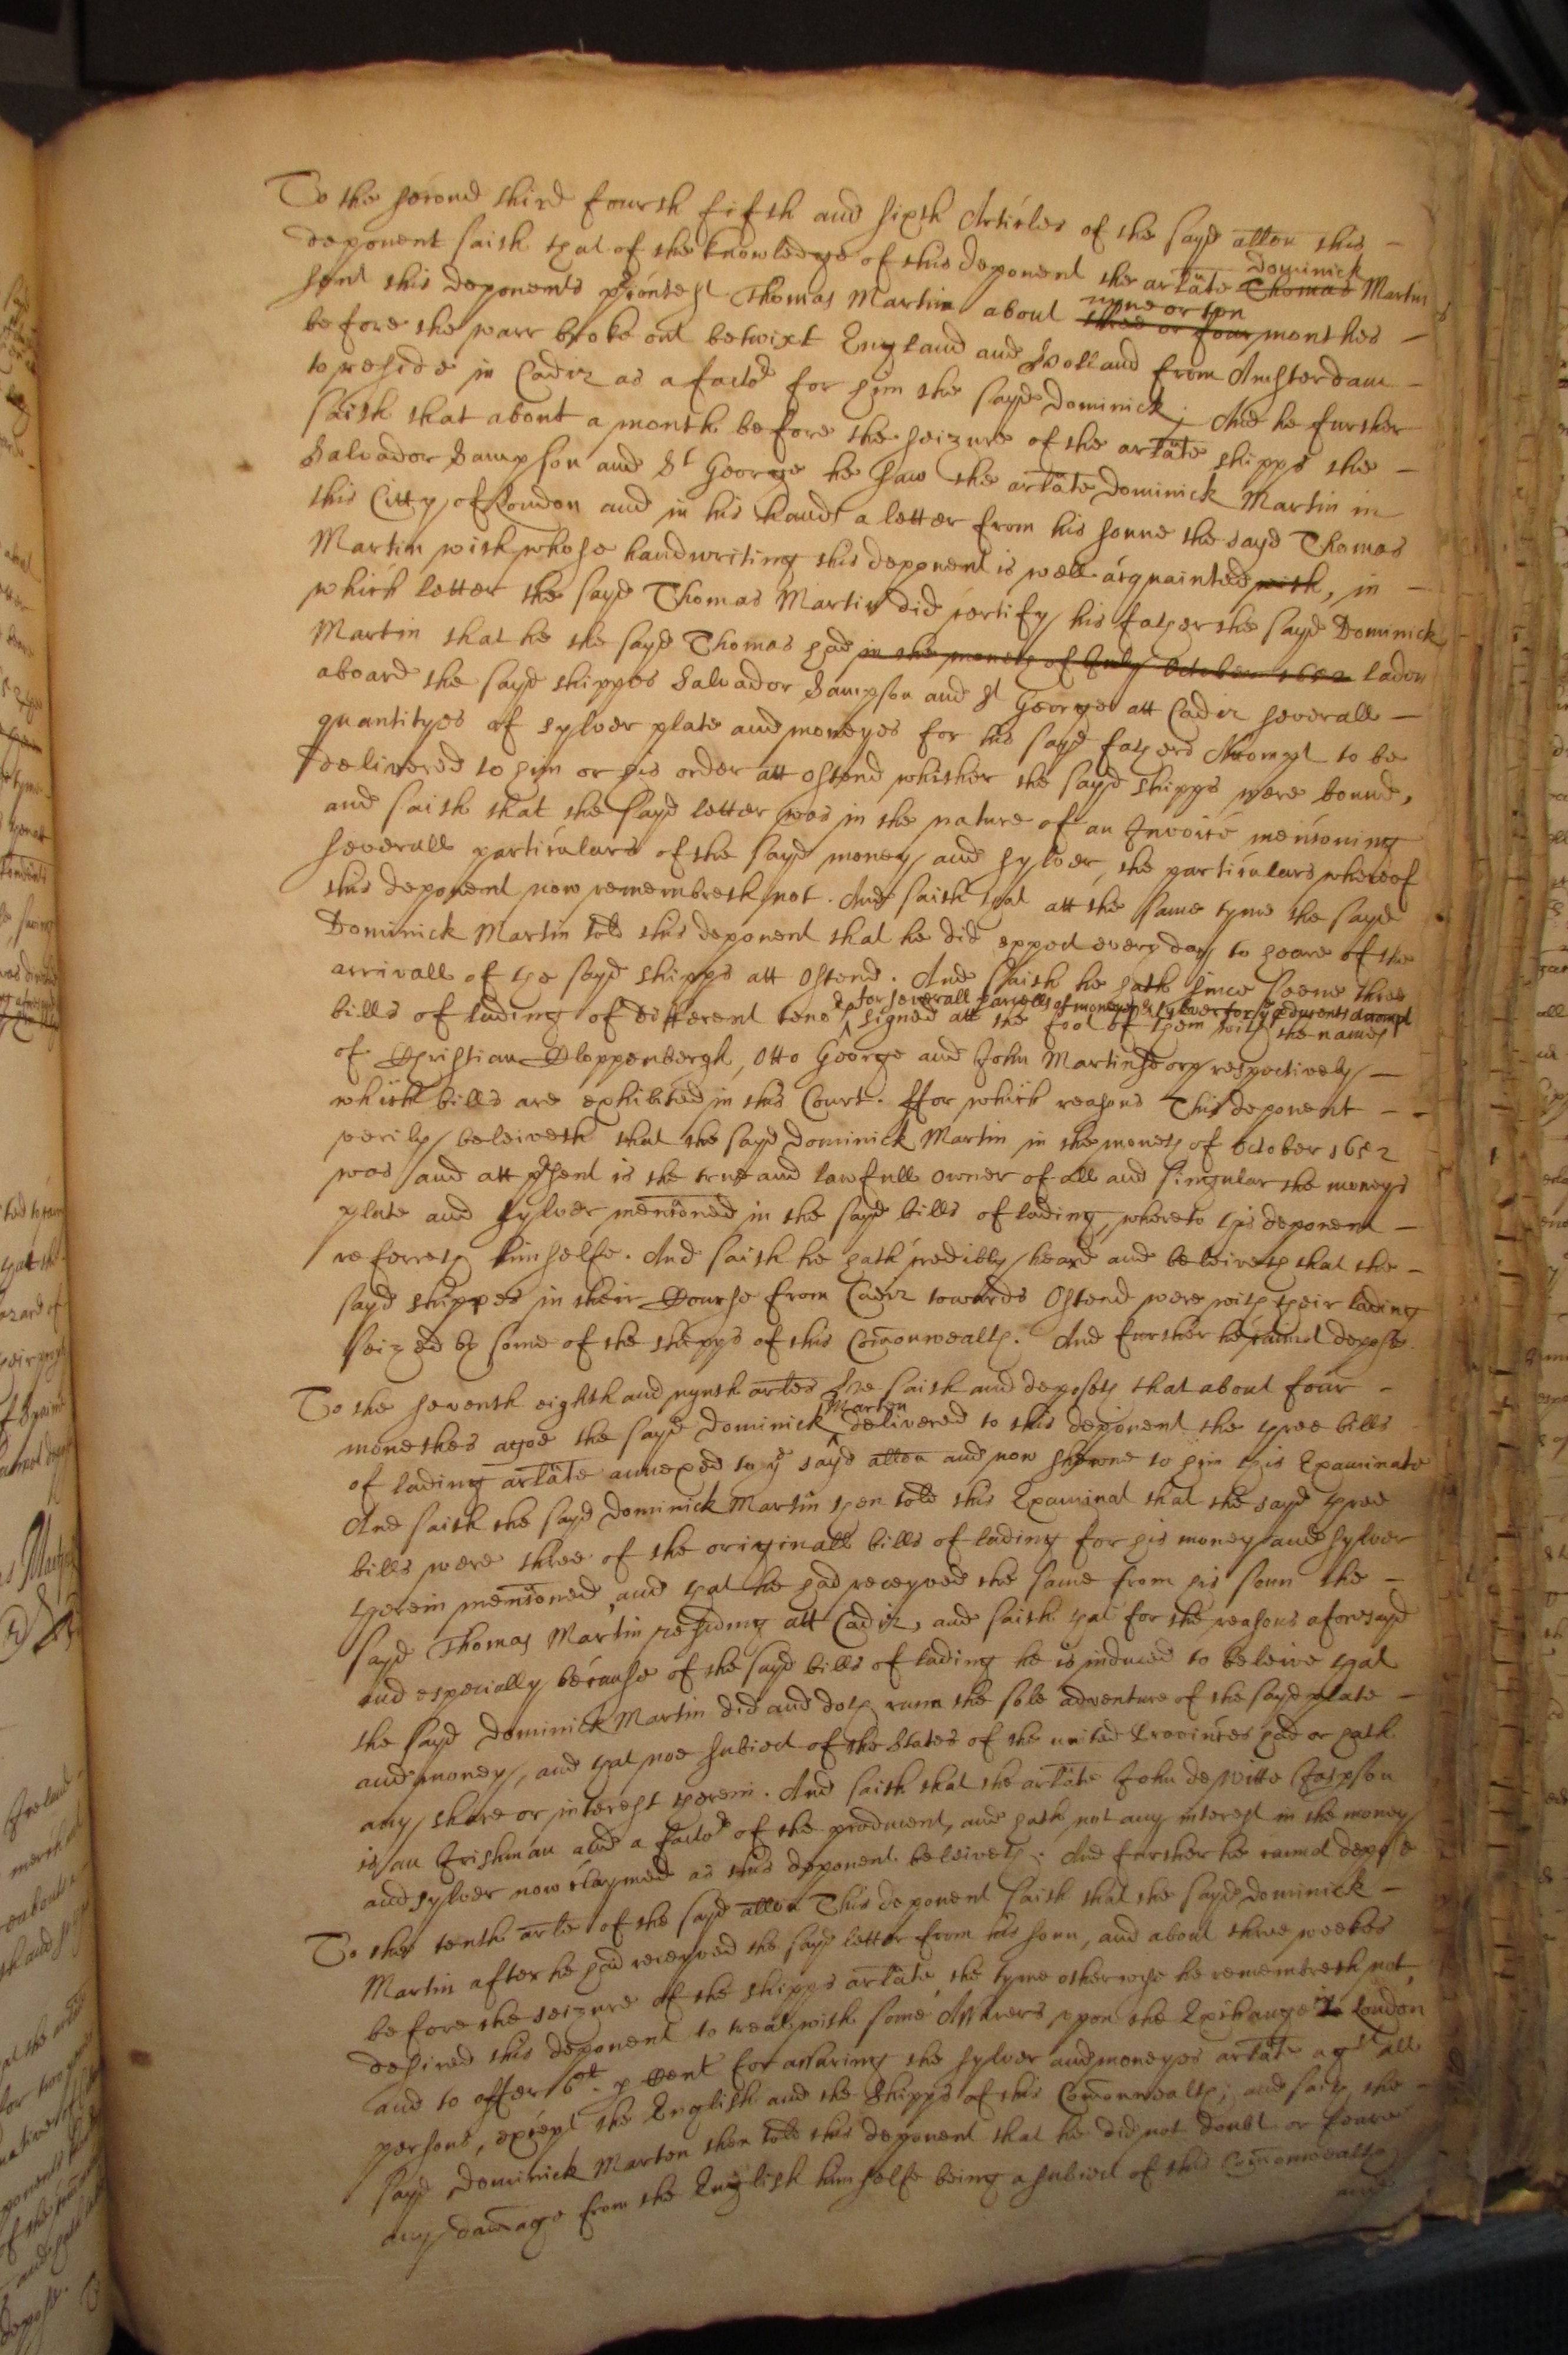 To the second third fourth fifth and sixth Articles of the sayd allon this -
deponent saith that of the knowledge of this deponent the arlate Thomas Dominick Martin
sent this deponents Thomas Martin about three or four nyne or ten monthes -
before the warr broke out betwixt England and Holland from Amsterdam -
to reside in Cadiz as a factor for him the sayd Dominick; And he further
saith that about a month before the seizure of the arlate shipps the -
Salvador Sampson and St George he saw the arlate Dominick Martin in
this Citty of London and in his hands a letter from his sonne the sayd Thomas
Martin with whose handwriting this deponent is well acquainted with, in -
which letter the sayd Thomas Martin did certify his father the sayd Dominick
Martin that he the sayd Thomas had in the moneth of July October 1652 laden
aboard the sayd shippes Salvador Sampson and St George att Cadiz severall -
quantityes of sylver plate and moneyes for his sayd fathers Accompt to be
delivered to him or his order att Ostend whither the sayd shipps were bound,
and saith that the sayd letter was in the nature of an Invoice menconing
severall particulars of the sayd money and sylver, the particulars whereof
this deponent now remembreth not. And saith that att the same tyme the sayd
Dominick Martin told this deponent that he did expect every day to heare of the
arrivall of the sayd shipps att Ostend. And saith he hath since seene three
bills of lading of different tenor for severall parcells of moneyes & sylver for ye producents accompt signed att the foot of them with the names
of Christian Cloppenbergh, Otto George and John Martinsdorp respectively -
which bills are exhibited in this Court. ffor which reasons This deponent - -
verily beleiveth that the sayd Dominick Martin in the moneth of October 1652
was and att psent is the true and lawfull owner of all and singular the moneys
plate and sylver menconed in the sayd bills of lading, whereto this deponent -
referreth himselfe. And saith he hath credibly heard and beleiveth that the -
sayd shippes in their Course from Cadiz towards Ostend were with their lading
seized by some of the shipps of this Comonwealth. And further he cannot depose
To the seventh eighth and nynth arles He saith and deposeth that about four -
monethes agoe the sayd Dominick Marten delivered to this deponent the three bills
of lading arlate annexed to ye sayd allon and now shewne to him this Examinate
And saith the sayd Dominick Martin then told this Examinat that the sayd three
bills were three of the originall bills of lading for his money and sylver
therein menconed, and that he had receyved the same from his sonn the -
sayd Thomas Martin residing att Cadiz, and saith that for the reasons aforesayd
and especially because of the sayd bills of lading he is induced to beleive that
the sayd Dominick Martin did and doth runn the sole adventure of the sayd plate -
and money, and that noe subiect of the States of the united Provinces had or hath
any share or interest therein. And saith that the arlate John de Witte
is an Irishman and a factor of the producent, and hath not any interest in the money
and sylver now claymed as this deponent beleiveth. And further he cannot depose
To the tenth arle of the sayd allon This deponent saith that the sayd Dominick -
Martin after he had receyved the sayd letter from his sonn, and about three weekes
before the seizure of the shipps arlate, the tyme otherwyse he remembreth not,
desired this deponent to treat with some Assurers upon the Exchange London
and to offer p Cent for assuring the sylver and moneyes arlate agst all
persons, except the English and the shipps of this Comonwealth; and saith the -
sayd Dominick Marten then told this deponent that he did not doubt or feare
any damage from the English himselfe being a subiect of this Comonwealth
and